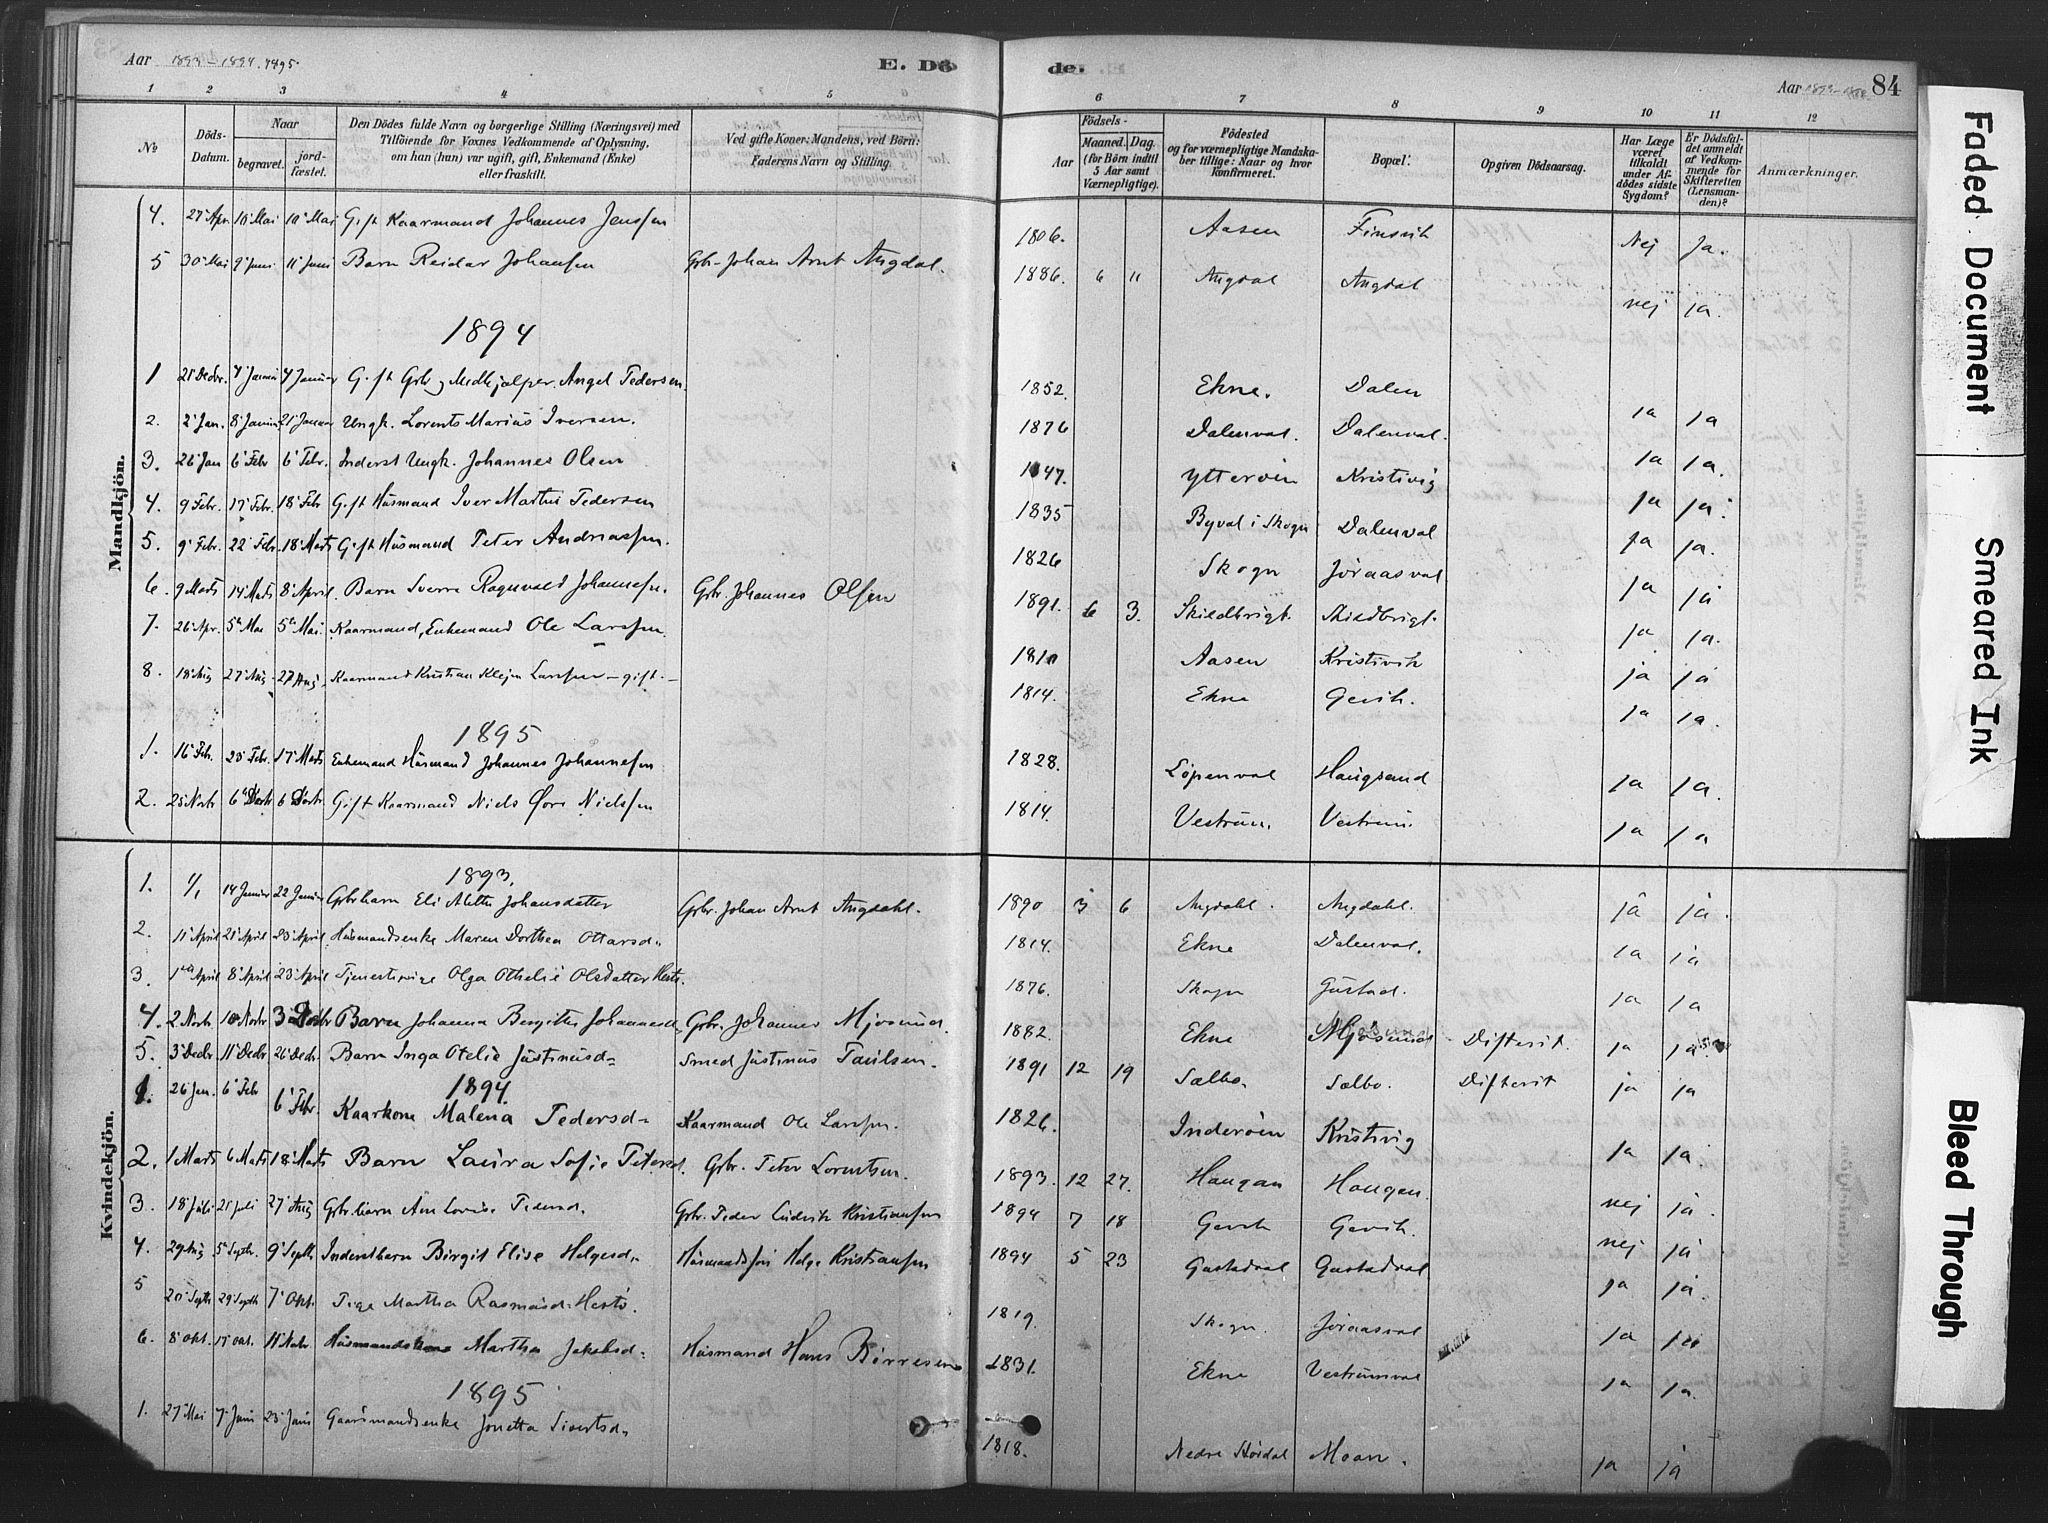 Aar 1893-1894.1895 E. Dö de. Aar 84
1 2 3 4 5 6 7 8 9 10 11 12
No
Döds-Datum.
Naar
begravet.
jord-fæstet.
Den Dödes fulde Navn og borgerlige Stilling (Næringsvei) med
Tilföiende for Voxnes Vedkommende af Oplysning,
om han (hun) var ugift, gift, Enkemand (Enke)
eller fraskilt.
Ved gifte Koner: Mandens, ved Börn:
Faderens Navn og Stilling.
Födsels-
Aar
Maaned. Dag.
(for Börn indtil
5 Aar samt
Værnepligtige).
Födested
og for værnepligtige Mandska-
ber tillige: Naar og hvor
konfirmeret.
Bopæl.
Opgiven Dödsaarsag.
Har Læge
været
tilkaldt
under Af-
dödes sidste
Sygdom?
Er Dödsfal-
det anmeldt
af Vedkom-
mende for
Skifteretten
(Lensman-
den)?
Anmærkninger.
Mandkjön.
4. 27 Apr 10 Mai 10 Mai Gift Kaarmand Johannes Jenssen 1806. Aasen Finsvik Nej Ja.
5 30 Mai 9 Juni 11 Juni Barn Reidar Johansen Grbr. Johan Arnt Angdal. 1886. 6 11 Angdal Angdal nej ja.
1894
1 21 Decbr. 4 Januar 4 Januar Gift Grbr. og Medhjælper Angel Pedersen. 1852. Ekne. Dalen ja ja
2. 2 Jan. 8 Januar 21 Januar Ungk. Lorents Marius Iversen. 1876 Dalenval. Dalenval. ja ja.
3. 26 Jan 6 Febr 6 Febr. Inderst Ungk. Johannes Olsen 1847. Ytterøen Kristivig ja ja
4. 9 Febr. 17 Febr. 18 Febr Gift Husmand Iver Martin Pedersen 1835 Byval i Skogn Dalenval ja ja.
5. 9 Febr. 22 Febr. 18 Marts Gift Husmand Peter Andreassen. 1826 Skogn Jøraasval ja ja
6. 9 Marts 14 Marts 8 April. Barn Sverre Ragnvald Johannesen. Grbr. Johannes Olsen 1891. 6 3. Skiedbrigt. Skiedbrigt. ja ja.
7. 26 Apr. 5 Mai 5 Mai. Kaarmand, Enkemand Ole Larssen. 1810 Aasen Kristivik ja ja
8. 18 Aug 27 Aug. 27 Aug. Kaarmand Kristian Klejn Larssen - gift. - 1814. Ekne Gevik. ja ja.
1895
1. 16 Febr. 25 Febr. 17 Marts Enkemand Husmand Johannes Johannesen 1828. Løpenval Haugsand ja ja.
2. 25 Novbr. 6 Decbr 6 Decbr. Gift Kaarmand Niels Øvre Nielssen 1814. Vestrum. Vestrum. ja ja
Kvindekjön.
1893.
1. 1/1 14 Januar 22 Januar Grbrbarn Eli Alette Johansdatter Grbr. Johan Arnt Angdahl. 1890 3 6 Angdahl. Angdahl. ja ja.
2. 11 April 21 April 23 April. Husmandsenke Maren Dorthea Ottarsd. 1814. Ekne Dalenval. ja ja
3. 1 April 8 April 23 April Tjenestepige Olga Othelie Olsdatter 1876. Skogn Gustad. ja ja
4. 2 Novbr. 10 Novbr 3 Decbr Barn Johanna Bergitte Johannesd. Grbr. Johannes Mjøsund. 1882. Ekne Mjøsund Difterit. ja ja.
5. 3 Decbr 11 Decbr 26 Decbr. Barn Inga Otelie Justinusd. Smed Justinus Paulsen. 1891 12 19 Sælbo. Sælbo. Difterit ja ja
1894.
1. 26 Jan. 6 Febr 6 Febr. Kaarkone Malena Pedersd. Kaarmand Ole Larssen. 1826. Inderøen Kristivig ja ja.
2. 1 Marts 6 Marts 18 Marts Barn Laura Sofie Petersd. Grbr. Peter Lorentsen. 1893. 12 27. Haugan Haugan. nej ja.
3. 18 Juli 21 Juli 27 Aug Grbr.barn Ane Lovise Pedersd. Grbr. Peder Ludvik Kristiansen 1894 7 18 Gevik Gevik. nej ja
4. 29 Aug 5 Septb. 9 Septb. Inderstbarn Birgit Elise Helgesd. Husmandssøn Helge Kristiansen 1894 5 23 Gustadval Gustadval ja ja.
5 20 Septb 29 Septb 7 Okt. Pige Martha Rasmusd. 1819. Skogn. Jøraasval ja ja
6. 8 Okt. 17 Okt. 11 Novbr Husmandskone Martha Jakobsd. Husmand Hans Børresen 1831. Ekne Vestrumsval ja ja.
1895
1. 27 Mai 7 Juni 23 Juni Gaardmandsenke Jonetta Sivertsd. 1818. Nedre Stjørdal Moan. ja ja
Faded Document
Smeared Ink
Bleed Through